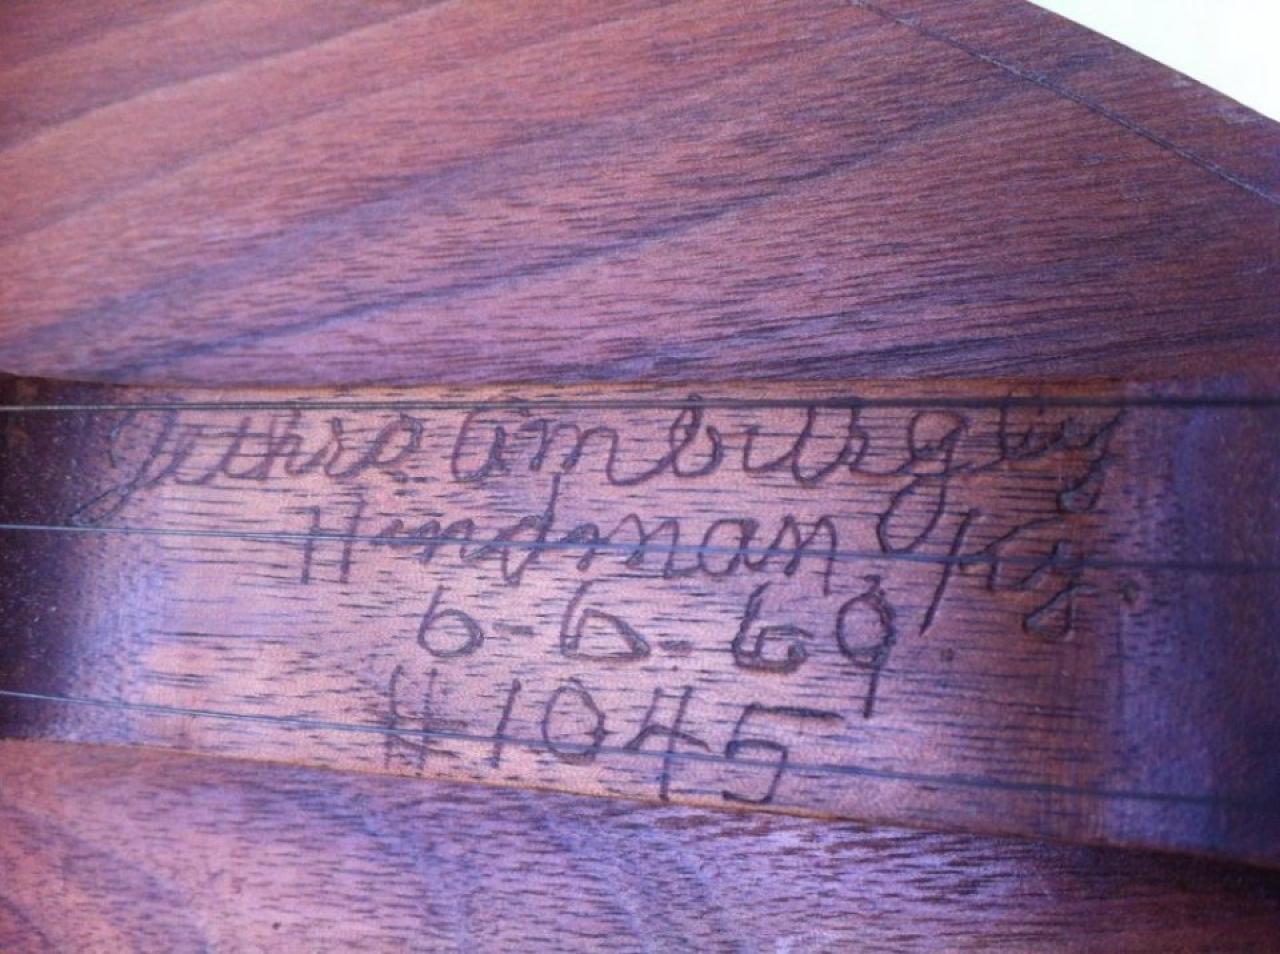 Jethro Amburgey
Hindman, Ky.
6-6-69
#1045